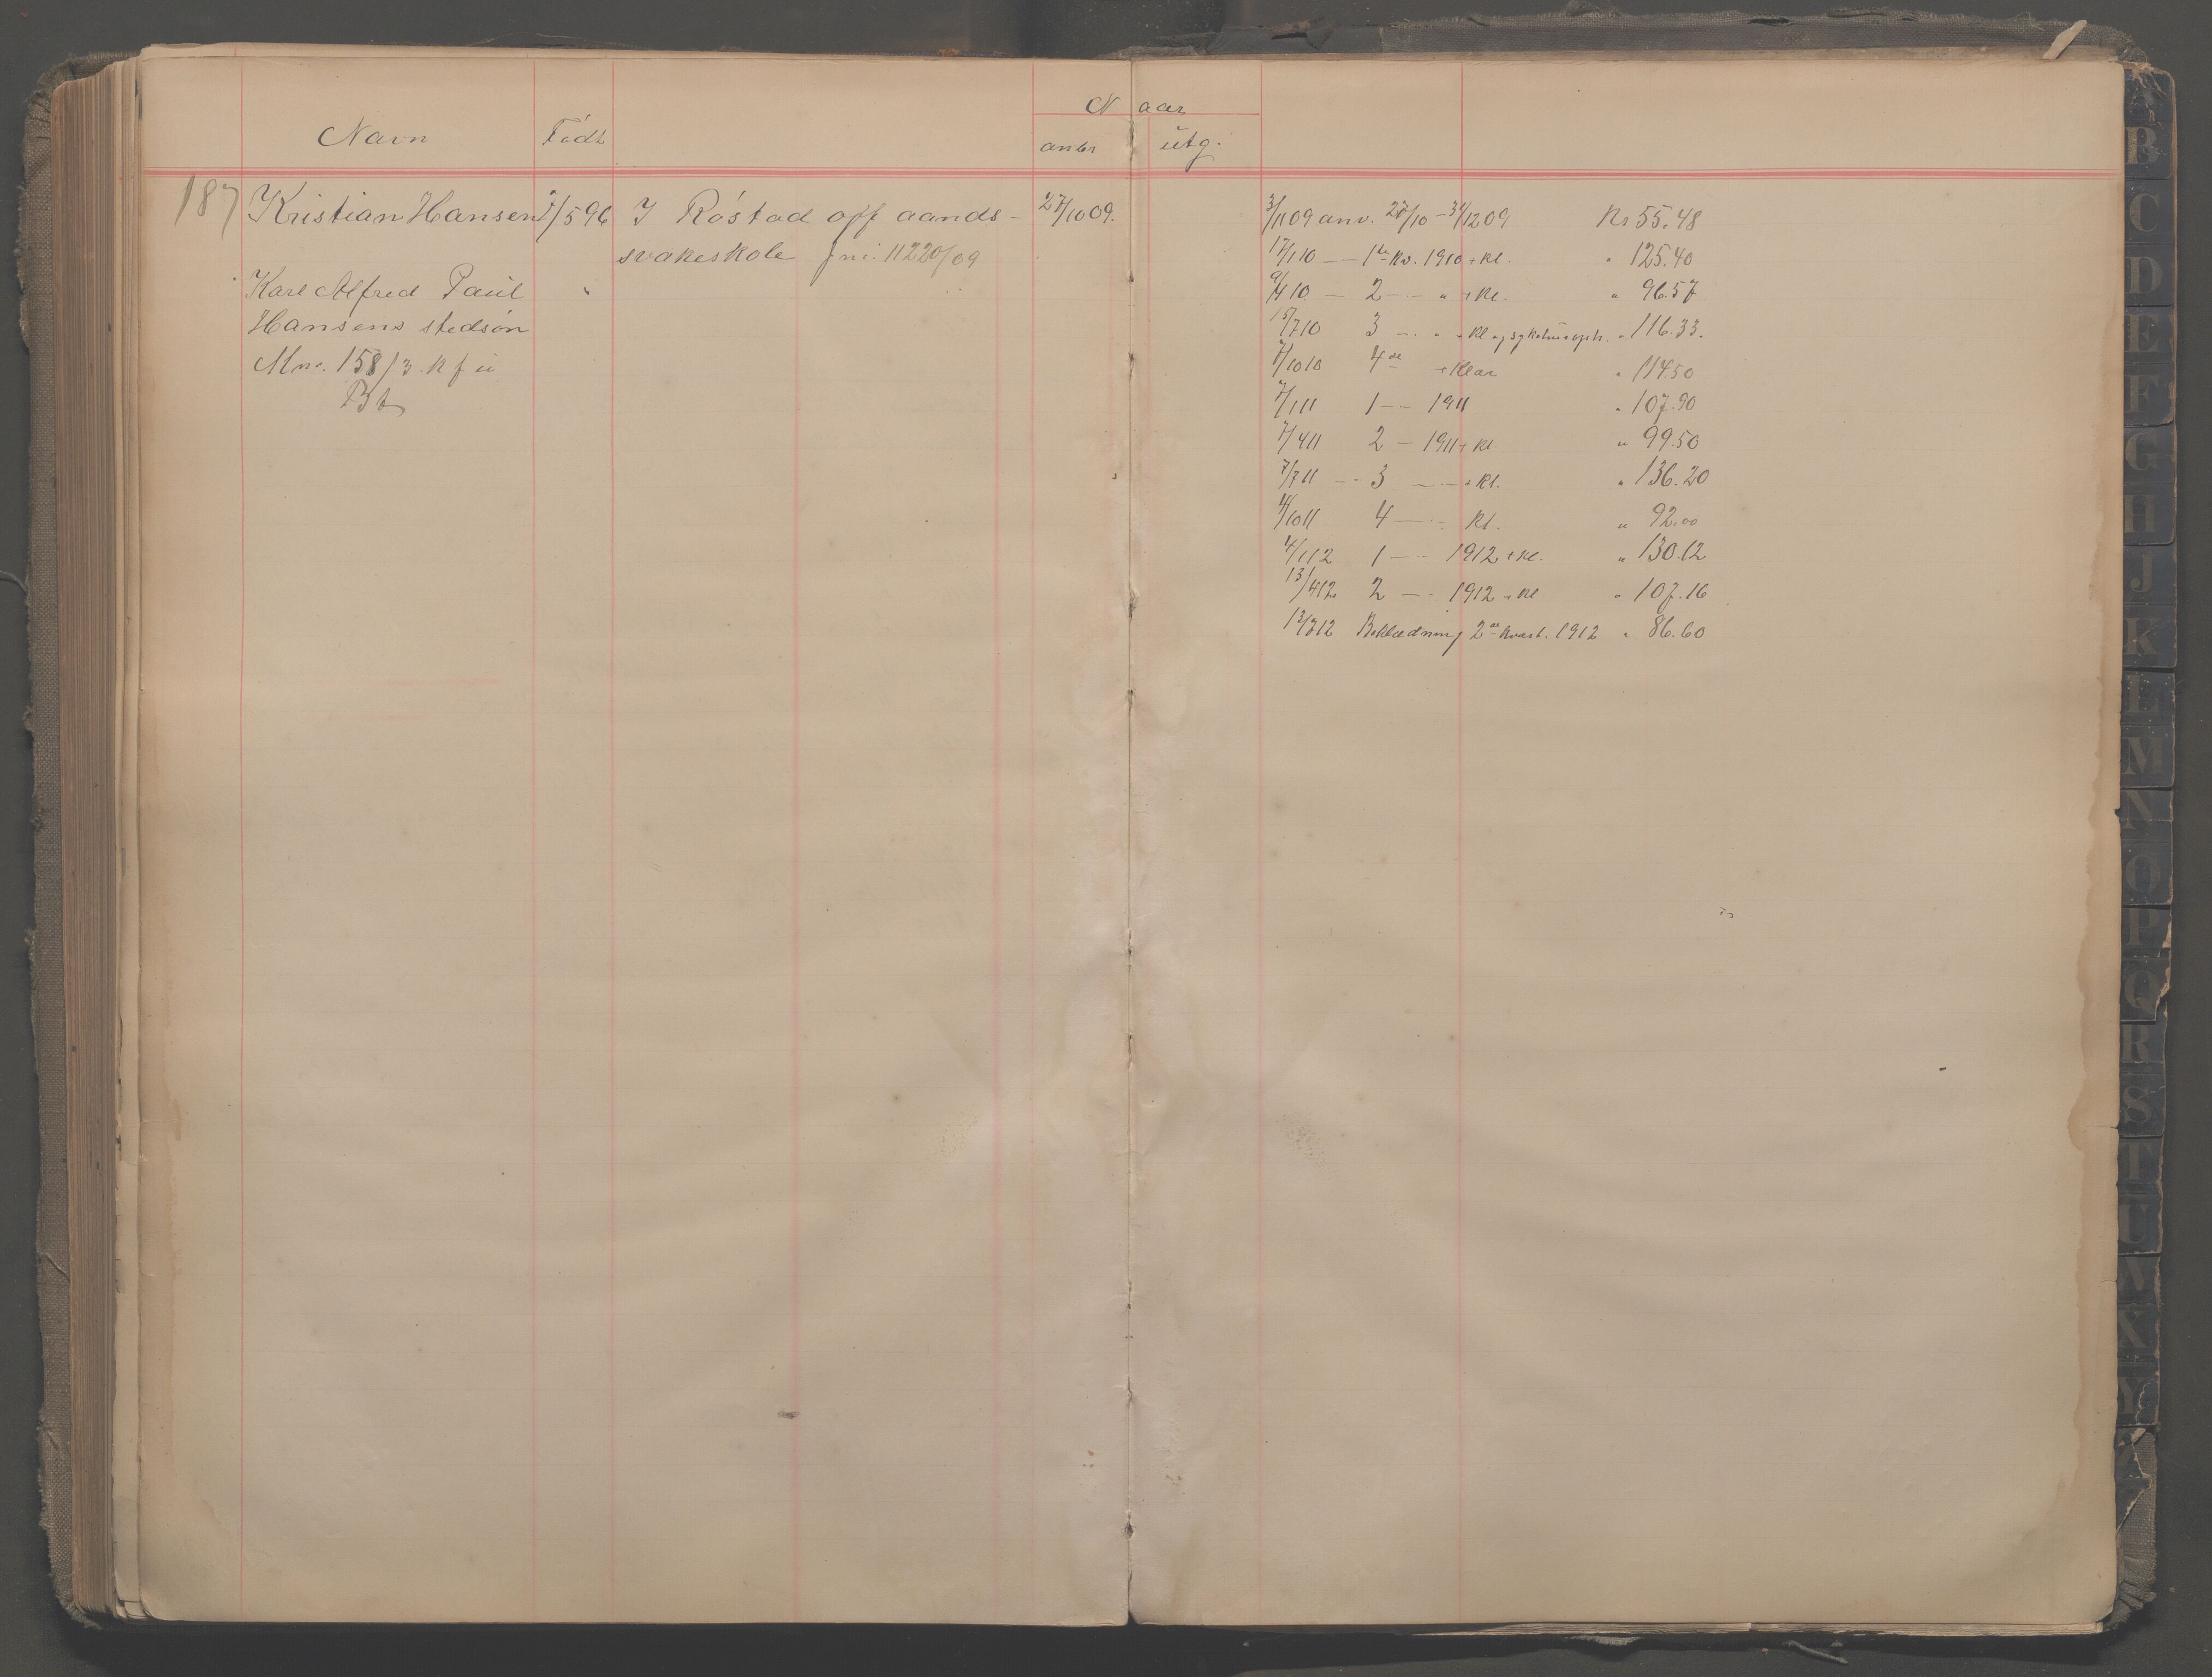 Navn Født Naar
anbr utg.
187 Kristian Hansen 7/5 96 I Røstad off aands-
svakeskole jnr. 11220/09
27/10 09.
Karl Alfred Paul
Hansens stedsøn
Mno. 158/3. K f u
Bt
3/11 09 anv. 27/10 - 31/12 09 Kr 55.48
17/1 10 — 1ste Kv. 1910 + Kl. " 125.40
9/4 10 — 2 — " + Kl. " 96.57
15/7 10 3 — " + Kl. og sykehusoph. " 116.33.
7/10 10 4de + Klær " 114.50
7/1 11 1 — 1911 " 107.90
7/4 11 2 — 1911 + Kl " 99.50
7/7 11 — 3 — + Kl. " 136.20
4/10 11 4 — Kl. " 92.00
4/1 12 1 — 1912 + Kl. " 130.12
13/4 12 2 — 1912 + Kl " 107.16
12/7 12 Beklædning 2de kvart. 1912 " 86.60
B
C
D
E
F
G
H
J
K
L
M
N
O
P
Q
R
S
T
U
V
X
Y